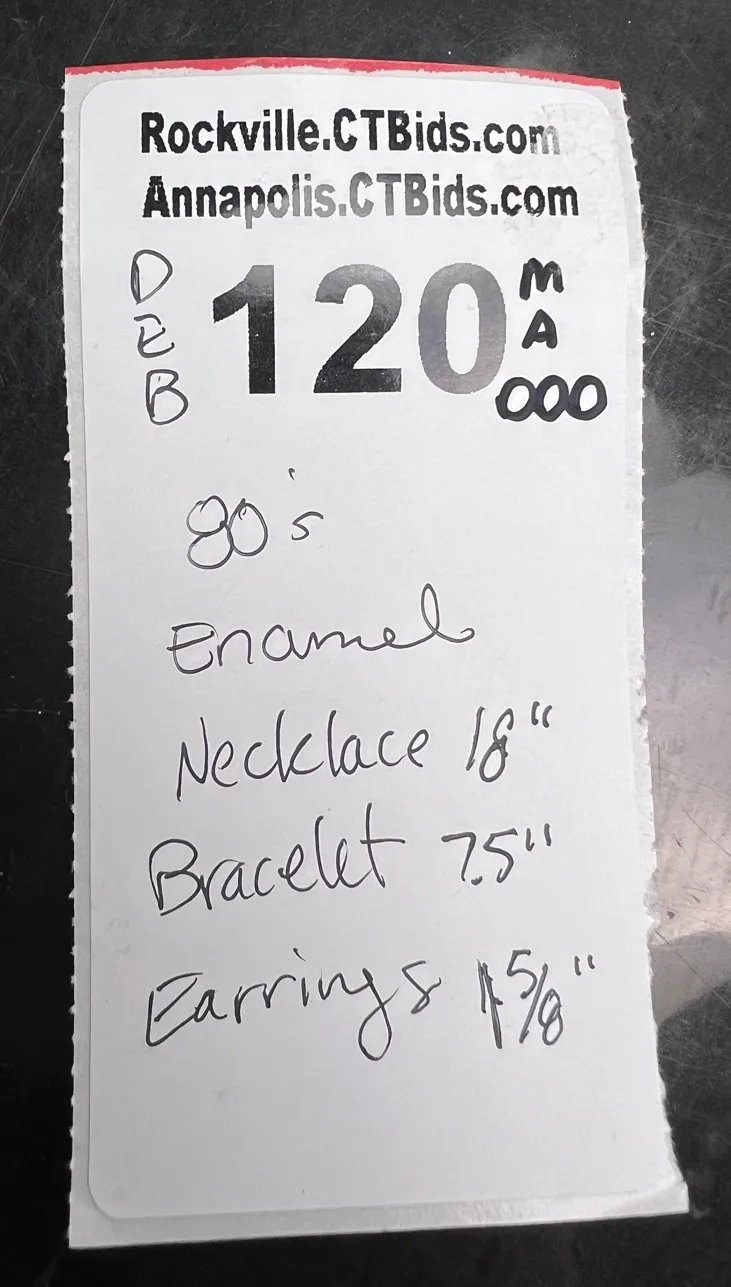 Rockville.CTBids.com
Annapolis.CTBids.com
DEB 120 MA 000
80's
Enamel
Necklace 18"
Bracelet 7.5"
Earrings 1 5/8"